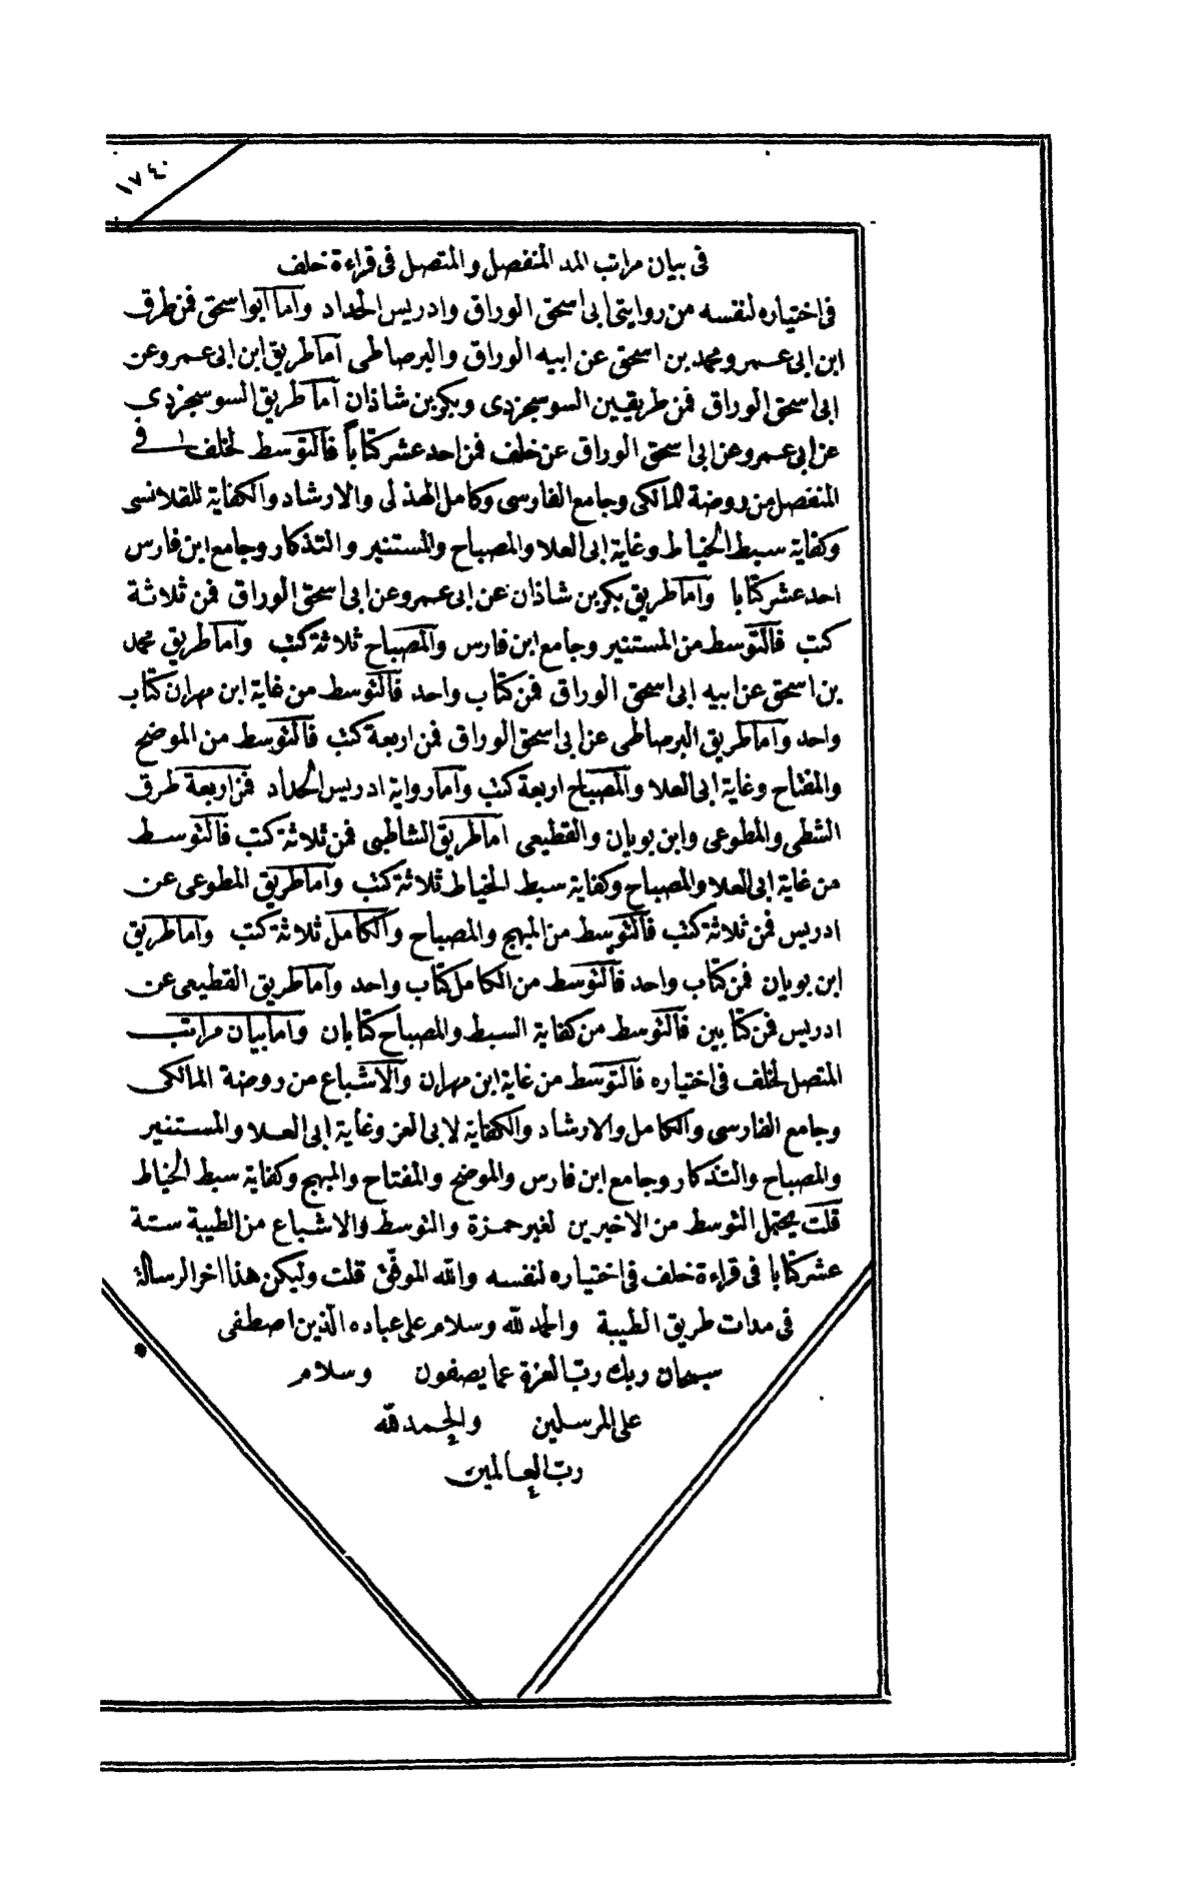 ١٧٤٠
فى بيان مراتب المد المنفصل والمتصل فى قراءة خلف
فى اختياره لنفسه من روايتى ابى اسحق الوراق وادريس الحداد واما ابو اسحق فمن طرق
ابن ابى عمر ومحمد بن اسحق عن ابيه الوراق والبرصاطى اما طريق ابن ابى عمر وعن
ابى اسحق الوراق فمن طريقين السوسنجردى وبكر بن شاذان اما طريق السوسنجردى
عن ابى عمر وعن ابى اسحق الوراق عن خلف فمن احد عشر كتاباً فالتوسط لخلف فى
المنفصل من روضة المالكى وجامع الفارسى وكامل الهذلى والارشاد والكفاية للقلانسى
وكفاية سبط الخياط وغاية ابى العلا والمصباح والمستنير والتذكار وجامع ابن فارس
احد عشر كتابا واما طريق بكر بن شاذان عن ابى عمر وعن ابى اسحق الوراق فمن ثلاثة
كتب فالتوسط من المستنير وجامع ابن فارس والمصباح ثلاثة كتب واما طريق محمد
بن اسحق عن ابيه ابى اسحق الوراق فمن كتاب واحد فالتوسط من غاية ابن مهران كتاب
واحد واما طريق البرصاطى عن ابى اسحق الوراق فمن اربعة كتب فالتوسط من الموضح
والمفتاح وغاية ابى العلا والمصباح اربعة كتب واما رواية ادريس الحداد فمن اربعة طرق
الشطى والمطوعى وابن بويان والقطيعى اما طريق الشاطبى فمن ثلاثة كتب فالتوسط
من غاية ابى العلا والمصباح وكفاية سبط الخياط ثلاثة كتب واما طريق المطوعى عن
ادريس فمن ثلاثة كتب فالتوسط من المبهج والمصباح والكامل ثلاثة كتب واما طريق
ابن بويان فمن كتاب واحد فالتوسط من الكامل كتاب واحد واما طريق القطيعى عن
ادريس فمن كتابين فالتوسط من كفاية السبط والمصباح كتابان واما بيان مراتب
المتصل لخلف فى اختياره فالتوسط من غاية ابن مهران والاشباع من روضة المالكى
وجامع الفارسى والكامل والارشاد والكفاية لابى العز وغاية ابى العلا والمستنير
والمصباح والتذكار وجامع ابن فارس والموضح والمفتاح والمبهج وكفاية سبط الخياط
قلت يحتمل التوسط من الاخيرين لغير حمزة والتوسط والاشباع من الطيبة ستة
عشر كتابا فى قراءة خلف فى اختياره لنفسه والله الموفق قلت وليكن هذا اخر الرسالة
فى مدات طريق الطيبة والحمد لله وسلام على عباده الذين اصطفى
سبحان ربك رب العزة عما يصفون وسلام
على المرسلين والحمد لله
رب العالمين